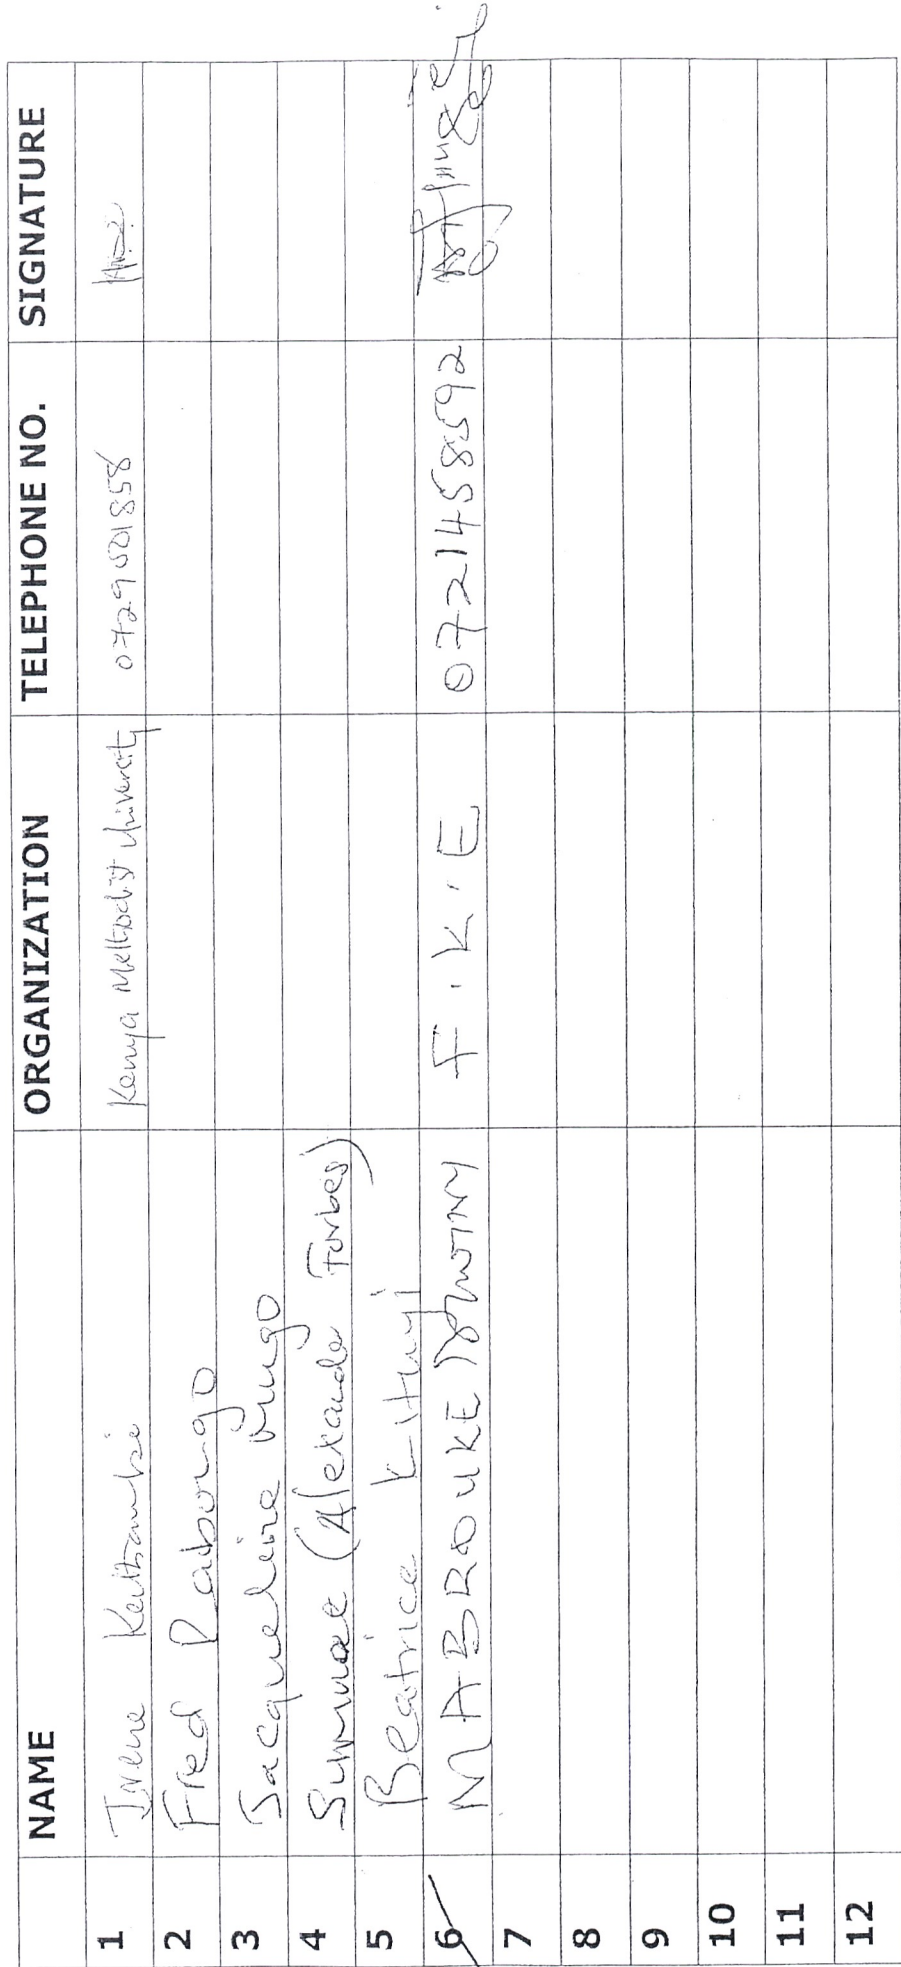 NAME ORGANIZATION TELEPHONE NO. SIGNATURE
1 Irene Kenya Methodist University 0729501858
2 Fred Rabongo
3 Jacqueline Mugo
4 (Alexander Forbes)
5 Beatrice Kituyi
6 MABROUKE F.K.E 0721458592
7
8
9
10
11
12